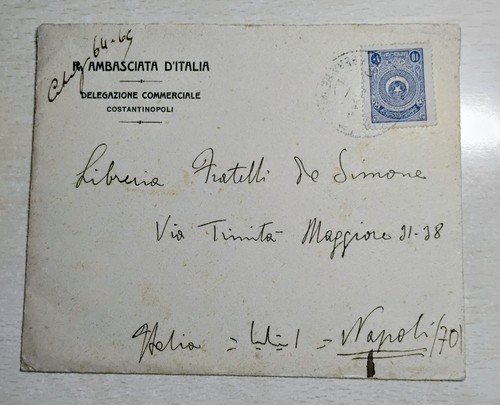 R. AMBASCIATA D'ITALIA
DELEGAZIONE COMMERCIALE
COSTANTINOPOLI
64-65
Libreria Fratelli de Simone
Via Trinità Maggiore 31-38
Italia = = Napoli (70)